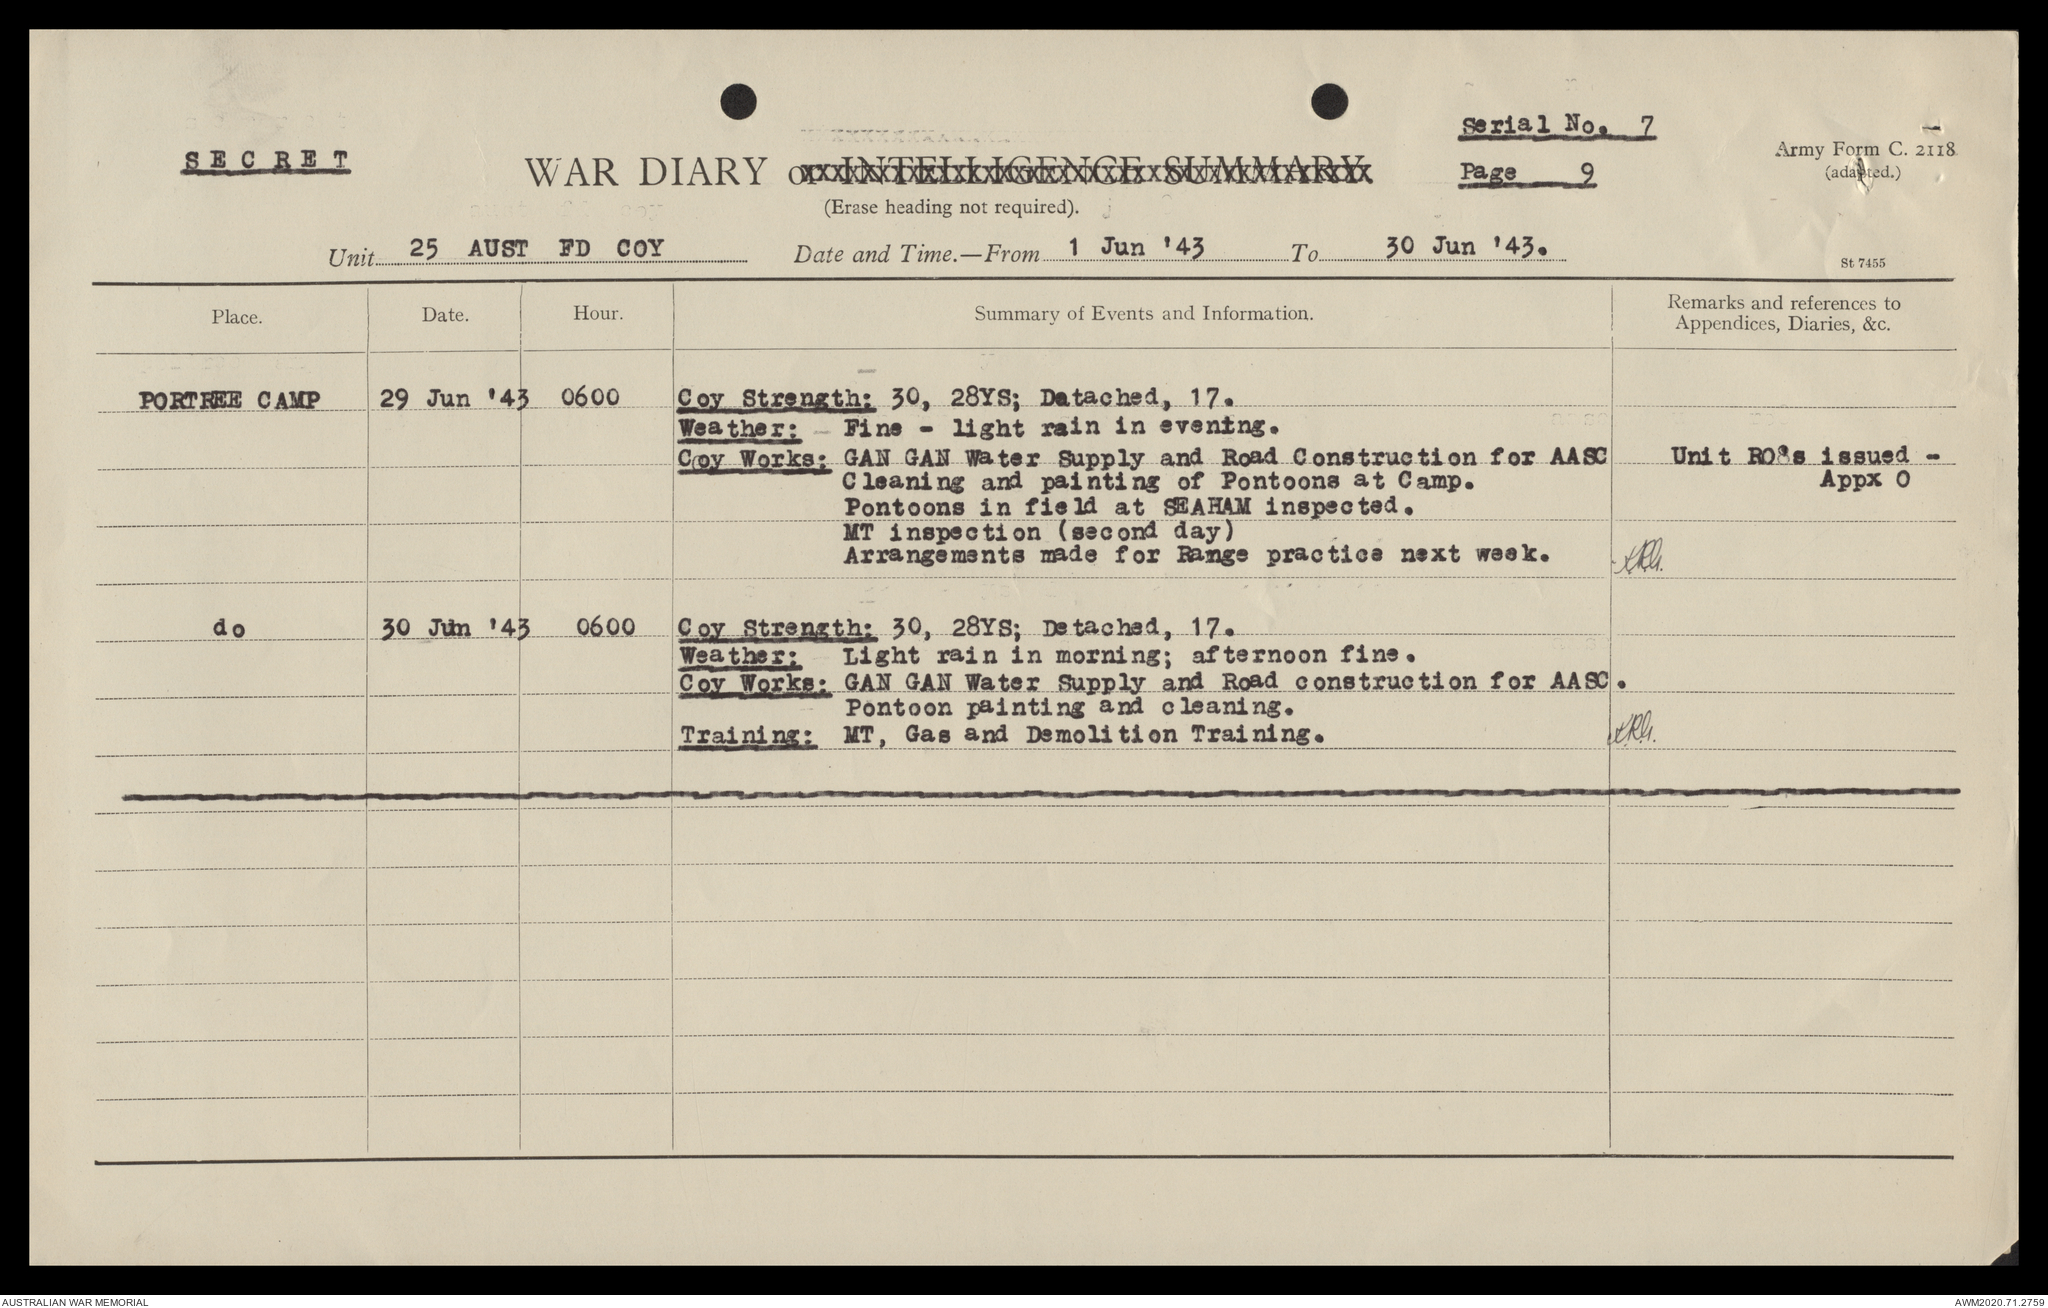 SECRET
WAR DIARY or INTELLIGENCE SUMMARY.
(Erase heading not required).
Serial No. 7
Page 9
Army Form C. 2118
(adapted.)
Unit 25 AUST FD COY Date and Time.—From 1 Jun '43 To 30 Jun '43.
St 7455
Place. Date. Hour. Summary of Events and Information. Remarks and references to
Appendices, Diaries, &c.
PORTREE CAMP 29 Jun '43 0600 Coy Strength: 30, 28YS; Detached, 17.
Weather: - Fine - light rain in evening.
Coy Works: GAN GAN Water Supply and Road Construction for AASC Unit RO8s issued -
Cleaning and painting of Pontoons at Camp. Appx O
Pontoons in field at SEAHAM inspected.
MT inspection (second day)
Arrangements made for Range practice next week.
do 30 Jun '43 0600 Coy Strength: 30, 28YS; Detached, 17.
Weather: Light rain in morning; afternoon fine.
Coy Works: GAN GAN Water Supply and Road construction for AASC.
Pontoon painting and cleaning.
Training: MT, Gas and Demolition Training.
AUSTRALIAN WAR MEMORIAL AWM2020.71.2759